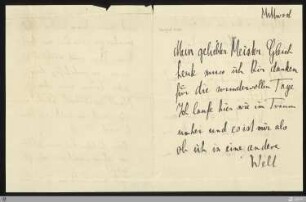 Mittwoch
Mein geliebter Meister. Gleich
heute muss ich Dir danken
für die wundervollen Tage
Ich laufe hier wie im Traum
umher und es ist mir als
ob ich in eine andere
Welt